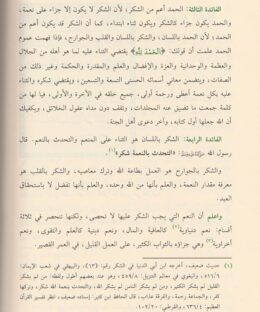 الفائدة الثالثة: الحمد أعم من الشكر، لأن الشكر لا يكون إلا جزاء على نعمة،
والحمد يكون جزاء كالشكر ويكون ثناء ابتداء، كما أن الشكر قد يكون أعم من
الحمد، لأن الحمد باللسان، والشكر باللسان والقلب والجوارح، فإذا فهمت عموم
الحمد علمت أن قولك: ﴿الحمد لله﴾ يقتضي الثناء عليه لما هو أهله من الجلال
والعظمة والوحدانية والعزة والإفضال والعلم والمقدرة والحكمة وغير ذلك من
الصفات، ويتضمن معاني أسمائه الحسنى التسعة والتسعين، ويقتضي شكره والثناء
عليه بكل نعمة أعطى ورحمة أولى، جميع خلقه في الآخرة والأولى، فيا لها من
كلمة جمعت ما تضيق عنه المجلدات، وتقف دون مداه عقول الخلائق، ويكفيك
أن الله جعلها أول كتابه، وآخر دعوى أهل الجنة.
الفائدة الرابعة: الشكر باللسان هو الثناء على المنعم والتحدث بالنعم. قال
رسول الله ﷺ: «التحدث بالنعمة شكر»(١).
والشكر بالجوارح هو العمل بطاعة الله وترك معاصيه، والشكر بالقلب هو
معرفة مقدار النعمة، والعلم بأنها من الله وحده، والعلم بأنها تفضل لا باستحقاق
العبد.
واعلم أن النعم التي يجب الشكر عليها لا تحصى، ولكنها تنحصر في ثلاثة
أقسام: نعم دنيوية كالعافية والمال، ونعم دينية كالعلم والتقوى، ونعم
أخروية وهي جزاؤه بالثواب الكثير، على العمل القليل، في العمر القصير.
(١) حديث ضعيف، أخرجه ابن أبي الدنيا في الشكر رقم: (٦٣)، والبيهقي في شعب الإيمان: